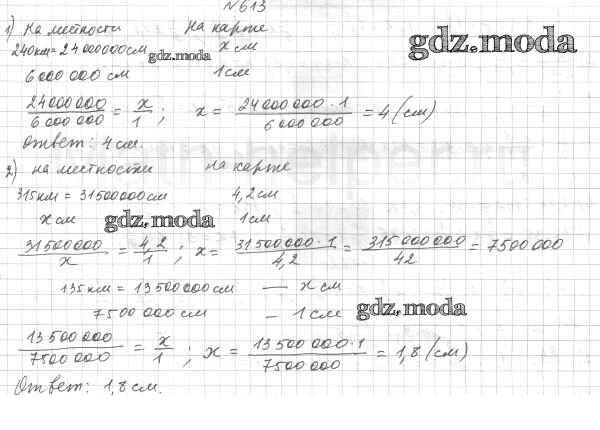 №613
1) На местности На карте
240км=24000000см x см
gdz.moda
gdz.moda
6000000 см 1см
24000000/6000000 = x/1 ; x = 24000000·1/6000000 = 4 (см)
Ответ: 4 см.
2) на местности на карте
315км = 31500000см 4,2см
x см 1см
gdz.moda
31500000/x = 4,2/1 ; x = 31500000·1/4,2 = 315000000/42 = 7500000
135км = 13500000см — x см
7500000см — 1см
gdz.moda
13500000/7500000 = x/1 ; x = 13500000·1/7500000 = 1,8 (см)
Ответ: 1,8 см.